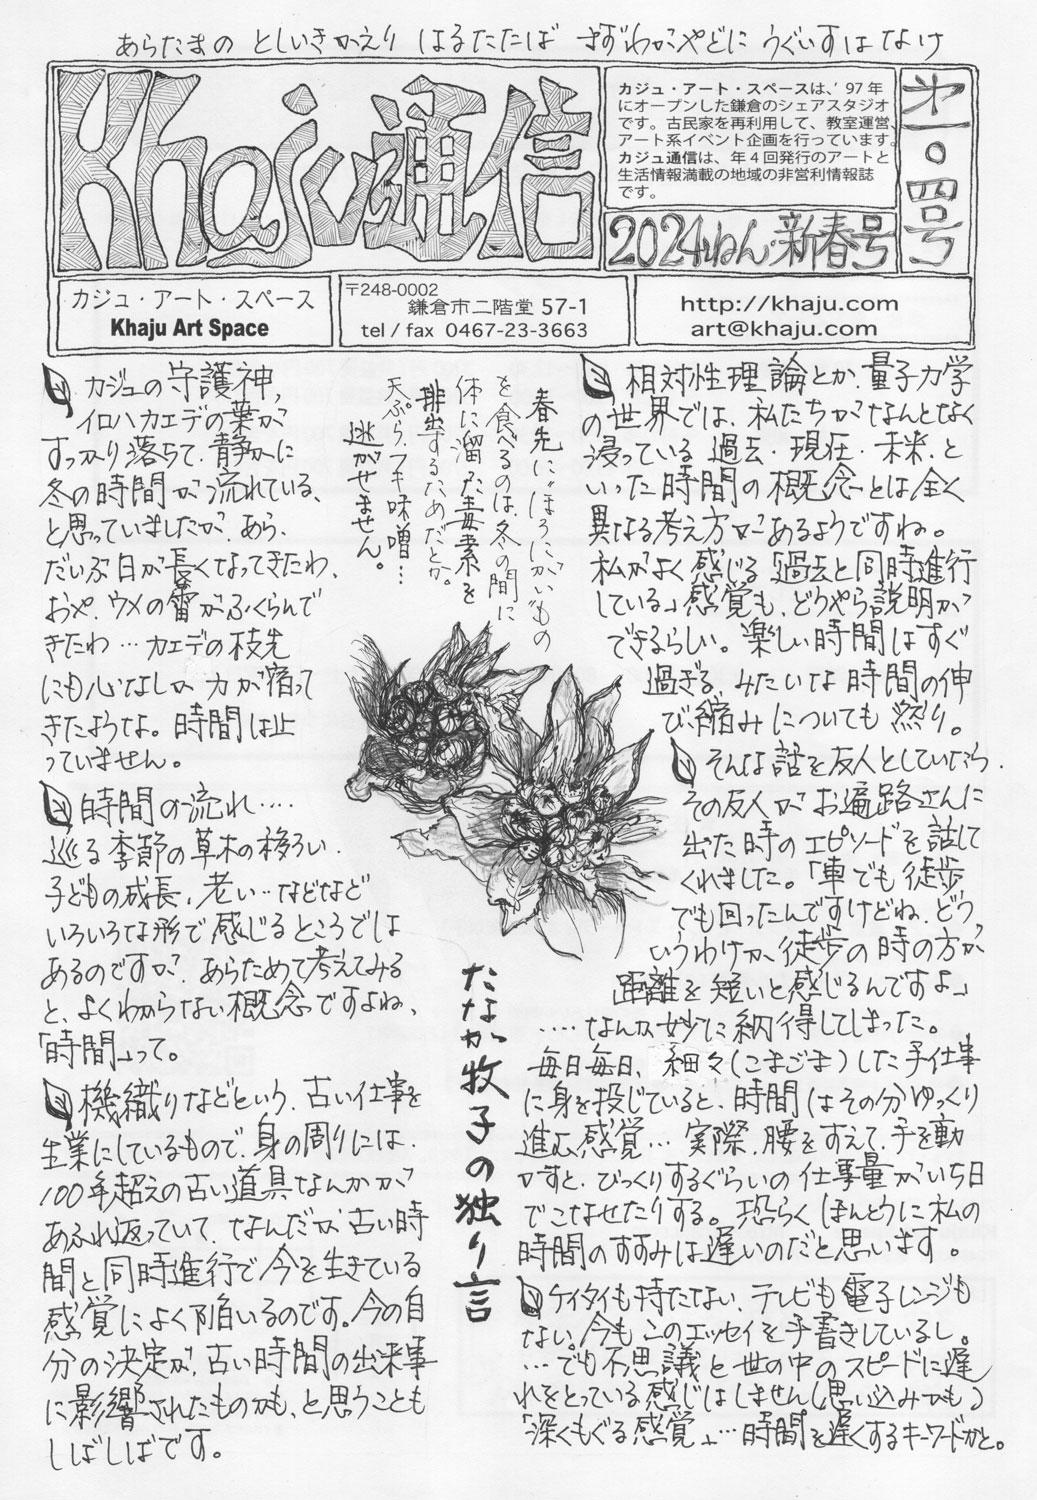 あらたまの としいきかえり はるたたば まずわがやどに うぐいすはなけ
Khaju通信
カジュ・アート・スペースは、'97年
にオープンした鎌倉のシェアスタジオ
です。古民家を再利用して、教室運営、
アート系イベント企画を行っています。
カジュ通信は、年4回発行のアートと
生活情報満載の地域の非営利情報誌
です。
2024ねん・新春号
第一〇四号
カジュ・アート・スペース
Khaju Art Space
〒248-0002
鎌倉市二階堂 57-1
tel / fax 0467-23-3663
http://khaju.com
art@khaju.com
カジュの守護神、
イロハカエデの葉が
すっかり落ちて、静かに
冬の時間が流れている、
と思っていましたが、あら、
だいぶ日が長くなってきたわ、
おや、ウメの蕾がふくらんで
きたわ…カエデの枝先
にも心なしか力が宿って
きたような。時間は止
っていません。
時間の流れ‥‥
巡る季節の草木の移ろい、
子どもの成長、老い…などなど
いろいろな形で感じるところでは
あるのですが、あらためて考えてみる
と、よくわからない概念ですよね、
「時間」って。
機織りなどという、古い仕事を
生業にしているもので、身の周りには、
100年超えの古い道具なんかが
あふれ返っていて、なんだか古い時
間と同時進行で今を生きている
感覚によく陥いるのです。今の自
分の決定が、古い時間の出来事
に影響されたものかも、と思うことも
しばしばです。
春先に"ほろにがい"もの
を食べるのは、冬の間に
体に溜った毒素を
排出するためだとか。
天ぷら、フキ味噌…
逃がせません。
たなか牧子の独り言
相対性理論とか、量子力学
の世界では、私たちがなんとなく
浸っている過去・現在・未来、と
いった時間の概念とは全く
異なる考え方があるようですね。
私がよく感じる「過去と同時進行
している」感覚も、どうやら説明が
できるらしい。楽しい時間はすぐ
過ぎる、みたいな時間の伸
び縮みについても然り。
そんな話を友人としていたら、
その友人がお遍路さんに
出た時のエピソードを話して
くれました。「車でも徒歩
でも回ったんですけどね、どう
いうわけか、徒歩の時の方が
距離を短いと感じるんですよ」
‥‥なんか妙に納得してしまった。
毎日毎日、細々(こまごま)した手仕事
に身を投じていると、時間はその分ゆっくり
進む感覚…実際、腰をすえて、手を動
かすと、びっくりするぐらいの仕事量がいち日
でこなせたりする。恐らくほんとうに私の
時間のすすみは遅いのだと思います。
ケイタイも持たない、テレビも電子レンジも
ない。今もこのエッセイを手書きしているし。
…でも不思議と世の中のスピードに遅
れをとっている感じはしません(思い込みかも)
「深くもぐる感覚」…時間を遅くするキーワードかと。